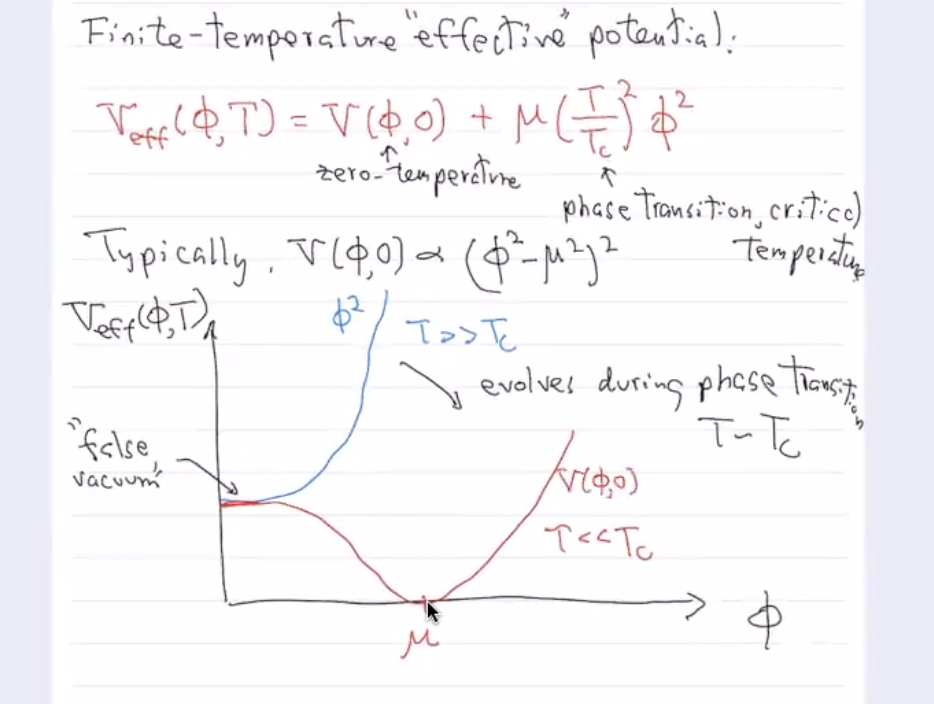 Finite-temperature "effective" potential:
V_eff(φ,T) = V(φ,0) + μ(T/T_c)² φ²
zero-temperature
phase transition, critical
temperature
Typically, V(φ,0) ∝ (φ²-μ²)²
V_eff(φ,T)
φ²
T>>T_c
evolves during phase transition
T~T_c
"false
vacuum"
V(φ,0)
T<<T_c
φ
μ